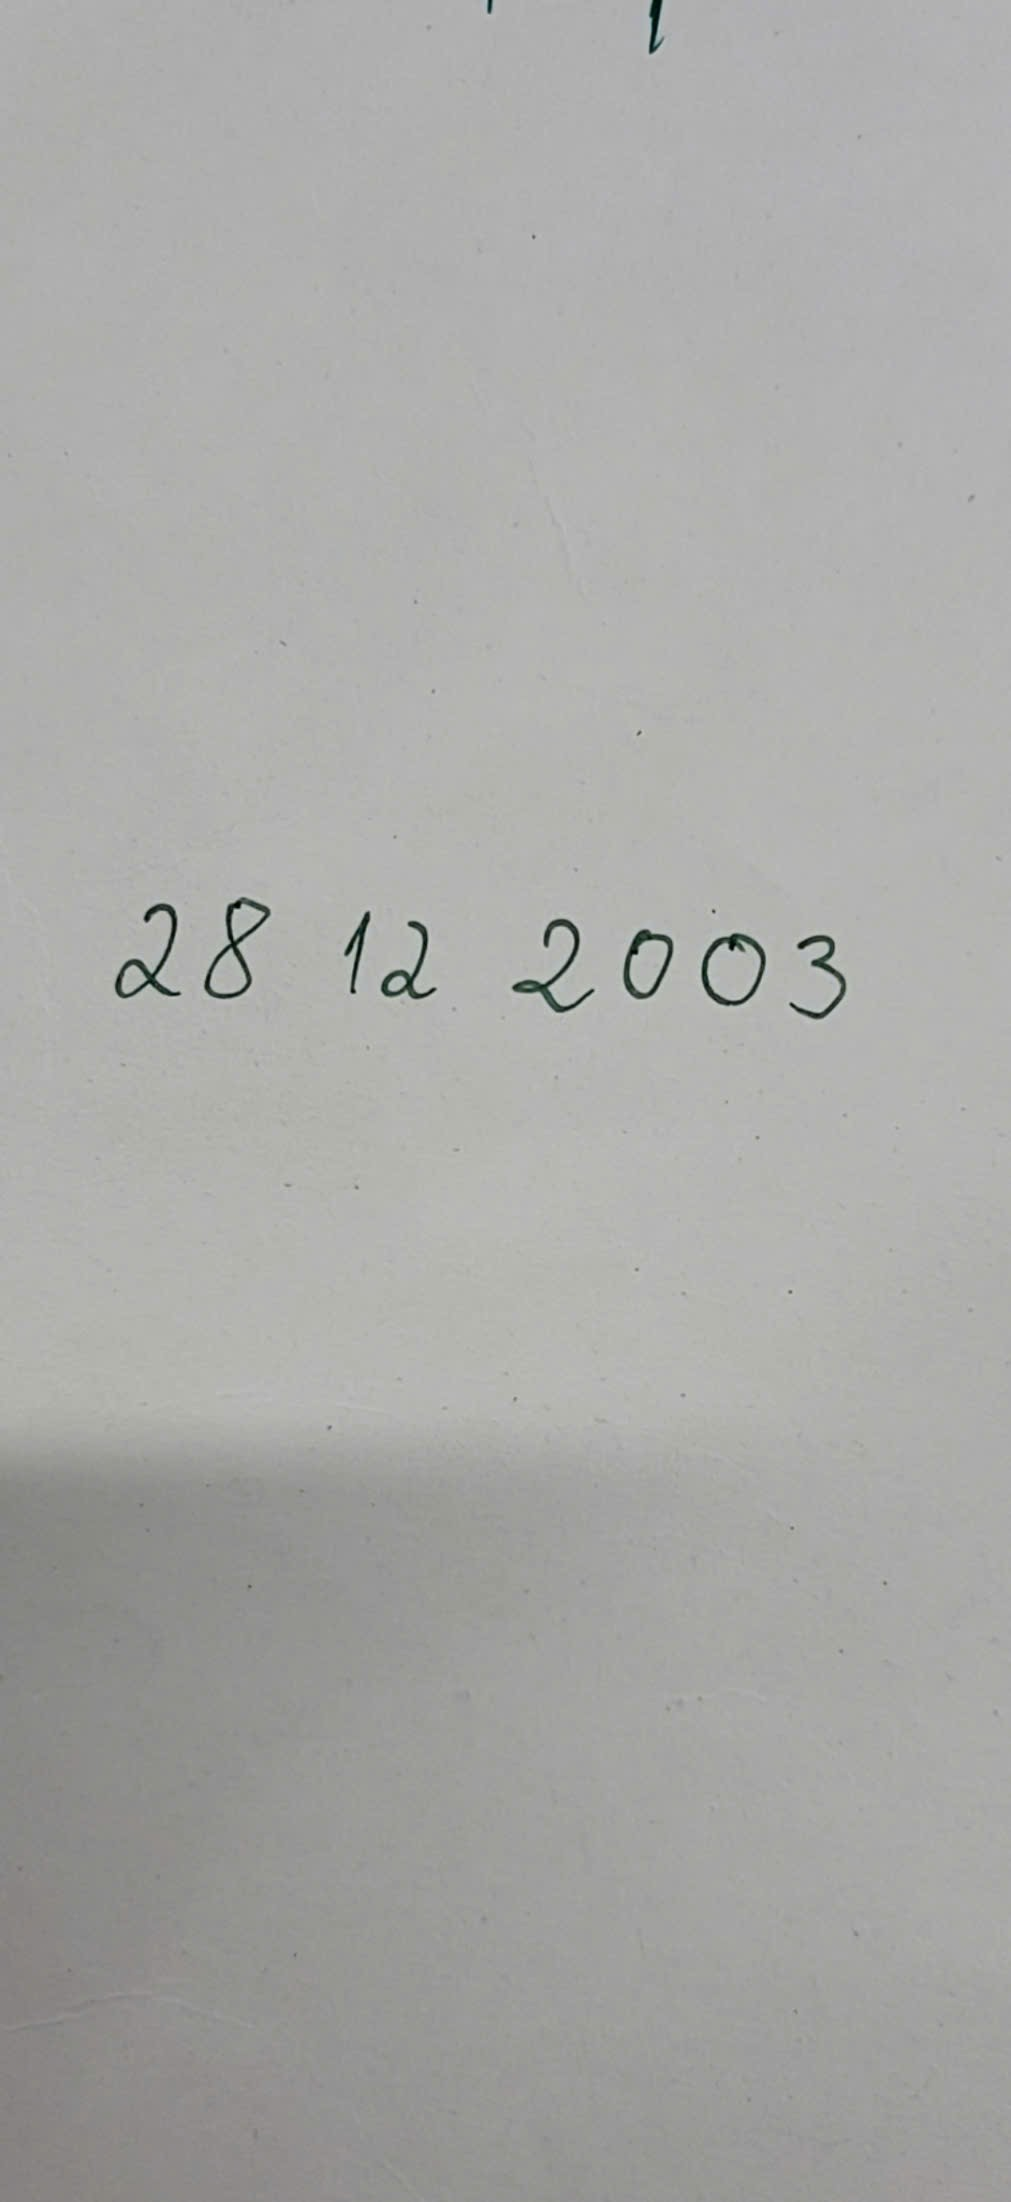 28 12 2003